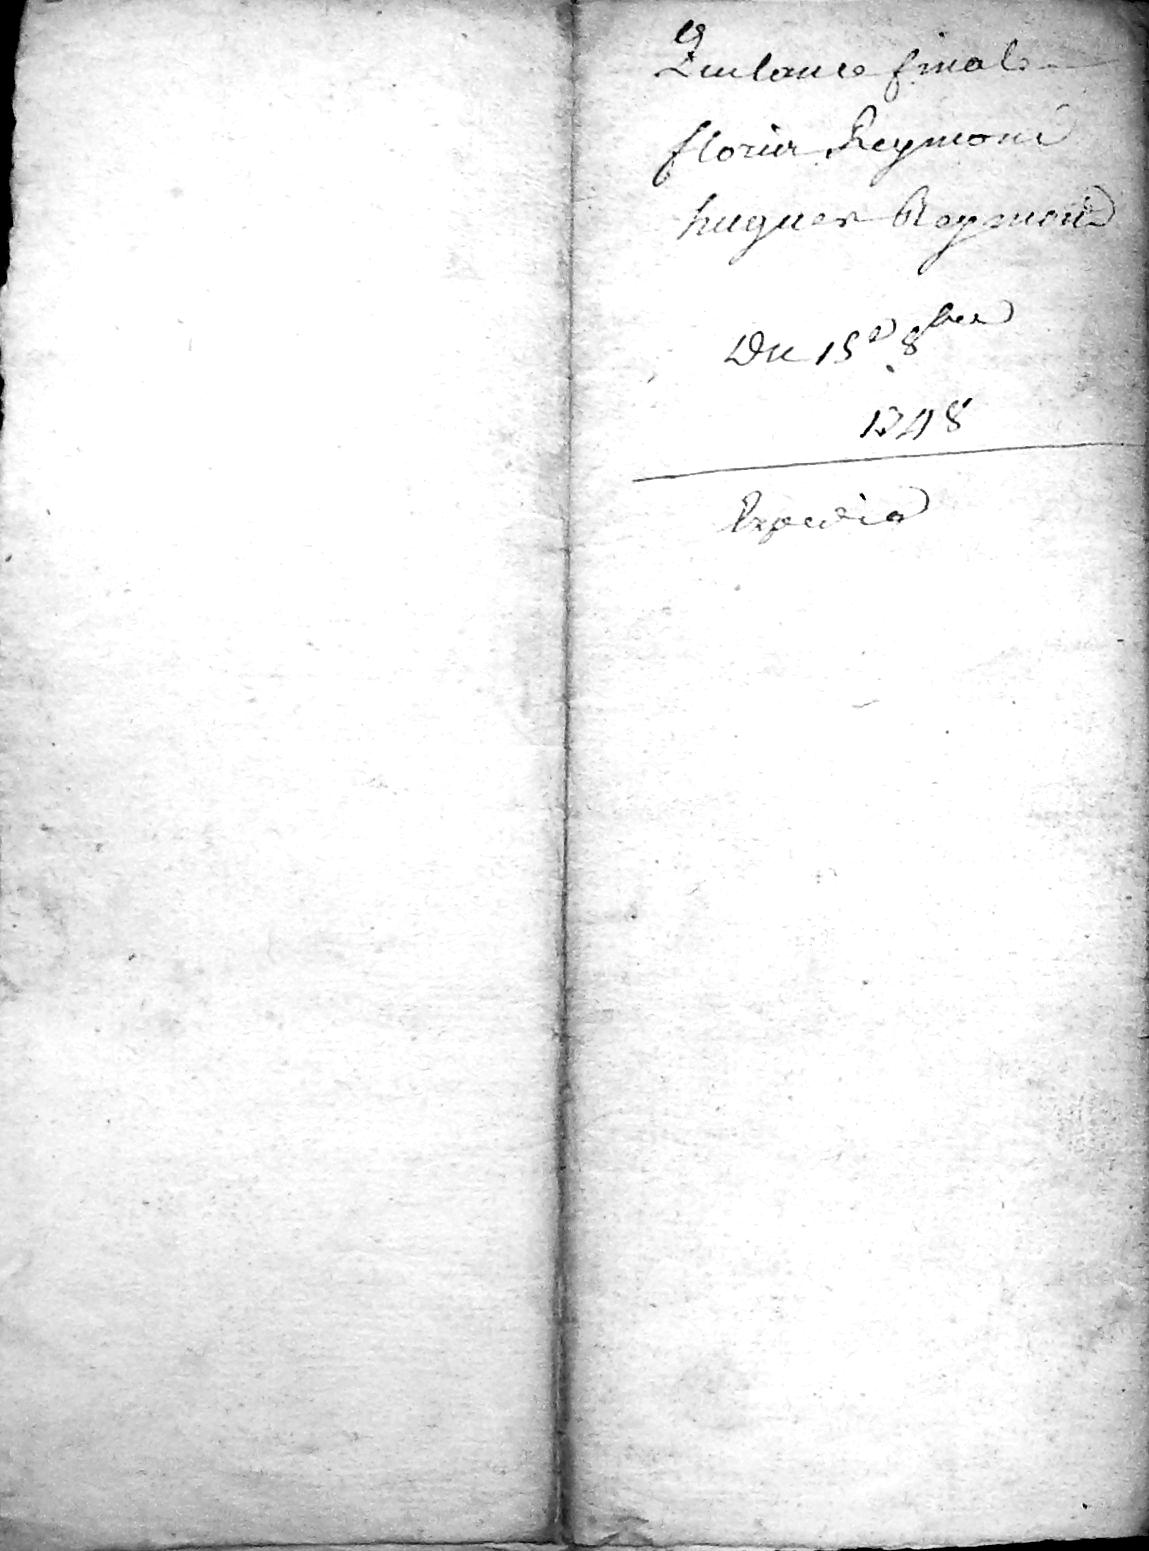 Quitance finale
florie Reymond
hugues Reymond
Du 15e 8bre
1748
Expedié